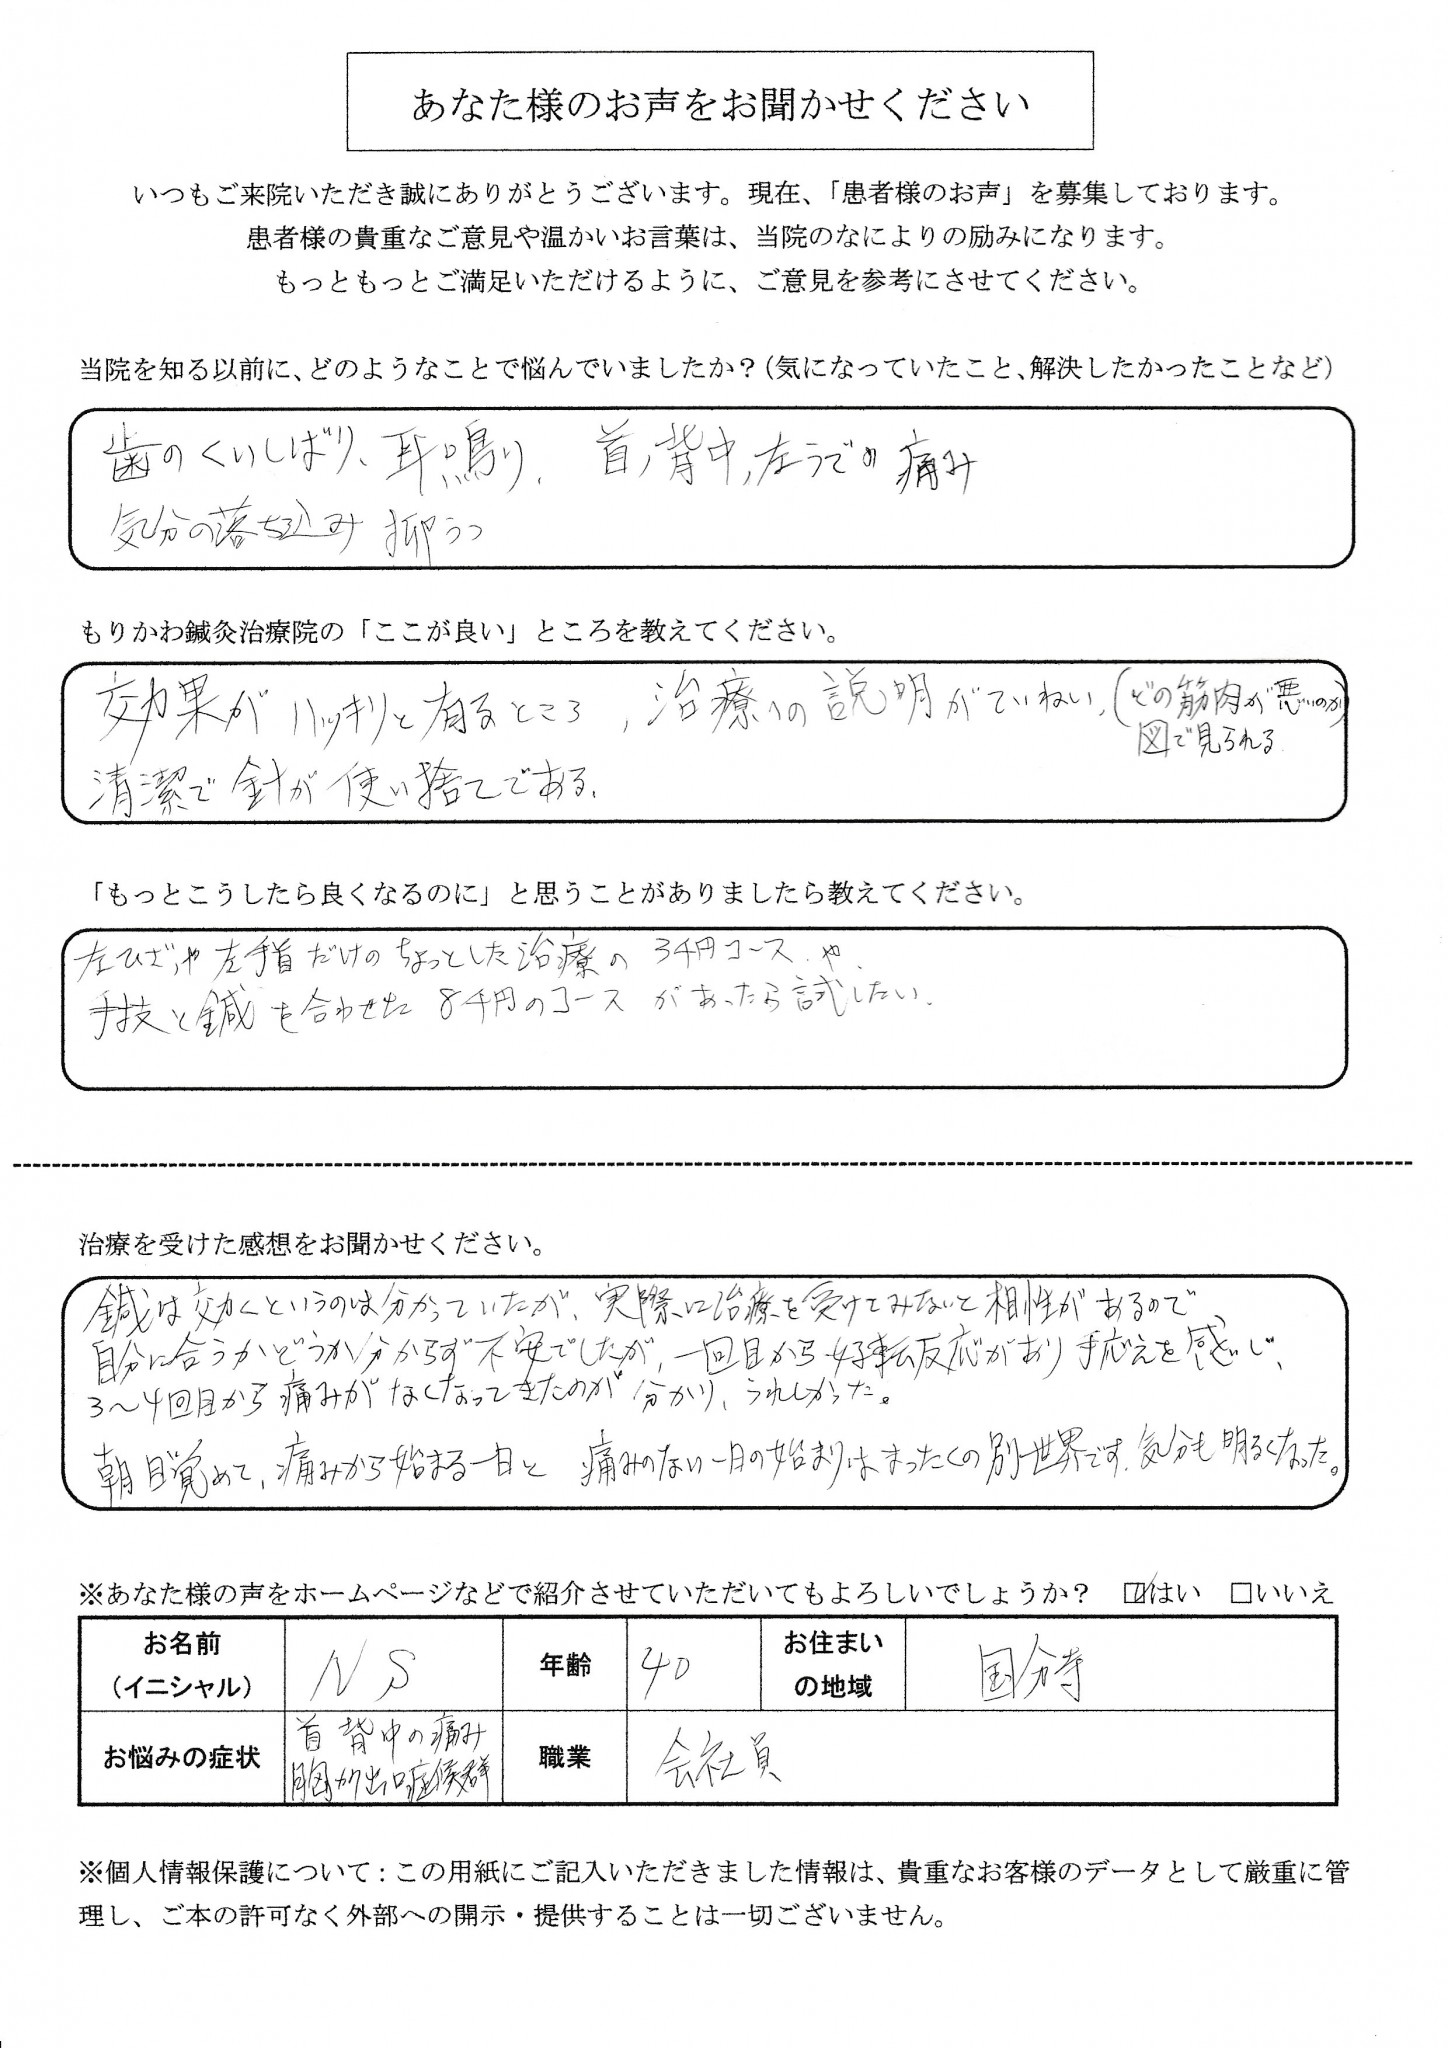 あなた様のお声をお聞かせください
いつもご来院いただき誠にありがとうございます。現在、「患者様のお声」を募集しております。
患者様の貴重なご意見や温かいお言葉は、当院のなによりの励みになります。
もっともっとご満足いただけるように、ご意見を参考にさせてください。
当院を知る以前に、どのようなことで悩んでいましたか？（気になっていたこと、解決したかったことなど）
歯のくいしばり、耳鳴り、首、背中、左うでの痛み
気分の落ち込み 抑うつ
もりかわ鍼灸治療院の「ここが良い」ところを教えてください。
効果がハッキリと有るところ、治療への説明がていねい、（どの筋肉が悪いのか）
図で見られる
清潔で針が使い捨てである。
「もっとこうしたら良くなるのに」と思うことがありましたら教えてください。
左ひざや左手首だけのちょっとした治療の3千円コースや、
手技と鍼を合わせた8千円のコースがあったら試したい。
治療を受けた感想をお聞かせください。
鍼は効くというのは分かっていたが、実際に治療を受けてみないと相性があるので
自分に合うかどうか分からず不安でしたが、一回目から好転反応があり手応えを感じ、
3〜4回目から痛みがなくなってきたのが分かり、うれしかった。
朝目覚めて、痛みから始まる一日と 痛みのない一日の始まりはまったくの別世界です。気分も明るくなった。
※あなた様の声をホームページなどで紹介させていただいてもよろしいでしょうか？ ☑はい □いいえ
お名前（イニシャル） NS 年齢 40 お住まいの地域 国分寺
お悩みの症状 首 背中の痛み 胸かく出口症候群 職業 会社員
※個人情報保護について：この用紙にご記入いただきました情報は、貴重なお客様のデータとして厳重に管
理し、ご本の許可なく外部への開示・提供することは一切ございません。